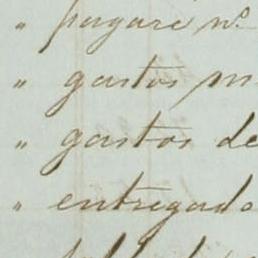 " pagare nº
" gastos m
" gastos de
" entregado